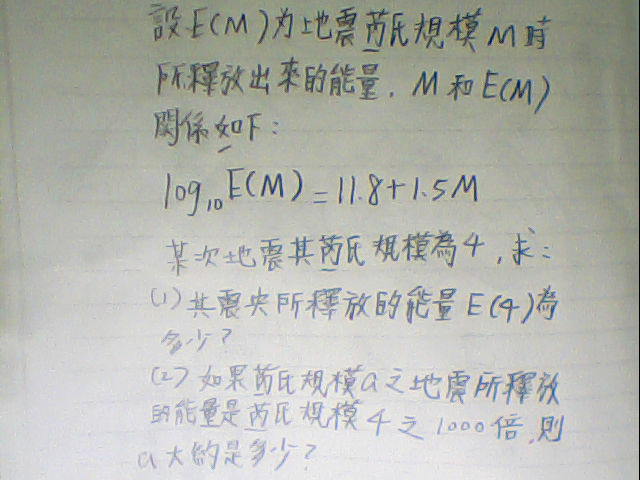 設E(M)為地震芮氏規模M時
所釋放出來的能量，M和E(M)
關係如下：
log₁₀E(M)=11.8+1.5M
某次地震其芮氏規模為4，求：
(1)其震央所釋放的能量E(4)為
多少？
(2)如果芮氏規模a之地震所釋放
的能量是芮氏規模4之1000倍，則
a大約是多少？